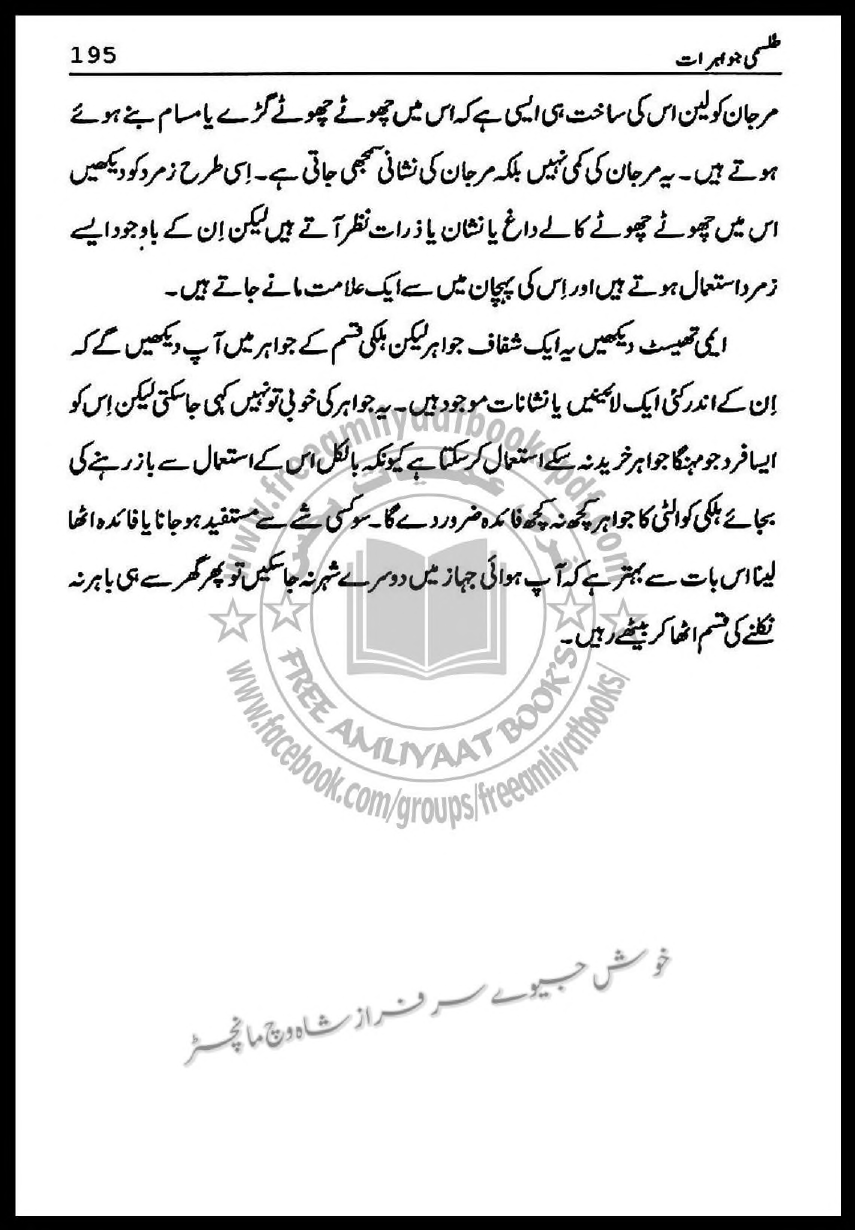 طلسمی جواہرات
195
مرجان کو لین اس کی ساخت ہی ایسی ہے کہ اس میں چھوٹے چھوٹے گڑے یا مسام بنے ہوئے
ہوتے ہیں۔ یہ مرجان کی کمی نہیں بلکہ مرجان کی نشانی سمجھی جاتی ہے۔ اِسی طرح زمرد کو دیکھیں
اس میں چھوٹے چھوٹے کالے داغ یا نشان یا ذرات نظر آتے ہیں لیکن اِن کے باوجود ایسے
زمرد استعمال ہوتے ہیں اور اِس کی پہچان میں سے ایک علامت مانے جاتے ہیں۔
ایمی تھیسٹ دیکھیں یہ ایک شفاف جواہر لیکن ہلکی قسم کے جواہر میں آپ دیکھیں گے کہ
اِن کے اندر کئی ایک لائینیں یا نشانات موجود ہیں۔ یہ جواہر کی خوبی تو نہیں کہی جا سکتی لیکن اِس کو
ایسا فرد جو مہنگا جواہر خرید نہ سکے استعمال کر سکتا ہے کیونکہ بالکل اس کے استعمال سے باز رہنے کی
بجائے ہلکی کوالٹی کا جواہر کچھ نہ کچھ فائدہ ضرور دے گا۔ سو کسی شے سے مستفید ہو جانا یا فائدہ اٹھا
لینا اس بات سے بہتر ہے کہ آپ ہوائی جہاز میں دوسرے شہر نہ جا سکیں تو پھر گھر سے ہی باہر نہ
نکلنے کی قسم اٹھا کر بیٹھے رہیں۔
www.freeamliyaatbookspdf.com
FREE AMLIYAAT BOOK'S
www.facebook.com/groups/freeamliyatbooks/
خوش جیوے سرفراز شاہ وچ مانچسٹر